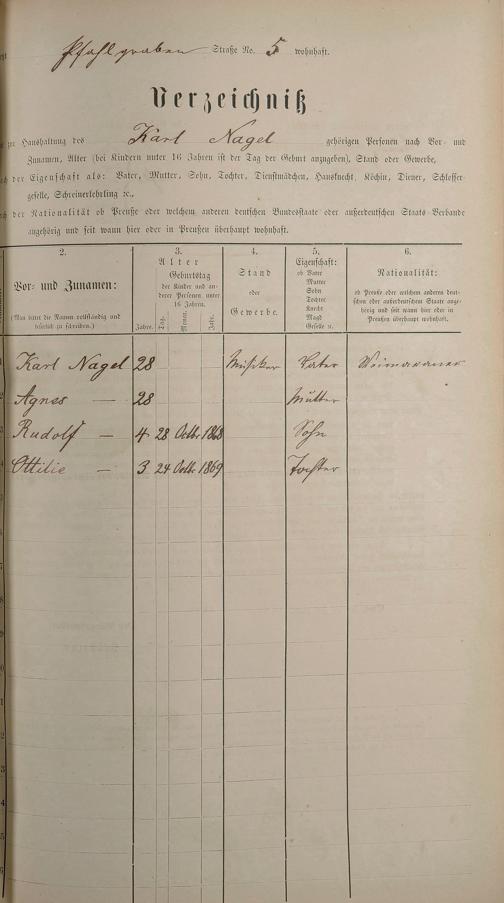 Pfahlgraben Straße No. 5 wohnhaft.
Verzeichniß
zur Haushaltung des Karl Nagel gehörigen Personen nach Vor- und
Zunamen, Alter (bei Kindern unter 16 Jahren ist der Tag der Geburt anzugeben), Stand oder Gewerbe,
der Eigenschaft als: Vater, Mutter, Sohn, Tochter, Dienstmädchen, Hausknecht, Köchin, Diener, Schlosser-
geselle, Schreinerlehrling ꝛc.,
der Nationalität ob Preuße oder welchem anderen deutschen Bundesstaate oder außerdeutschen Staats-Verbande
angehörig und seit wann hier oder in Preußen überhaupt wohnhaft.
2. 3. 4. 5. 6.
Vor- und Zunamen:
(Man bittet die Namen vollständig und
leserlich zu schreiben.)
Alter
Geburtstag
der Kinder und an-
derer Personen unter
16 Jahren.
Jahre. Tag. Monat. Jahr.
Stand
oder
Gewerbe.
Eigenschaft:
ob Vater
Mutter
Sohn
Tochter
Knecht
Magd
Geselle ꝛc.
Nationalität:
ob Preuße oder welchem anderen deut-
schen oder außerdeutschen Staate ange-
hörig und seit wann hier oder in
Preußen überhaupt wohnhaft.
Karl Nagel 28 Musiker Vater Weimaraner
Agnes — 28 Mutter
Rudolf — 4 28 Octbr. 1868 Sohn
Ottilie — 3 24 Octb. 1869 Tochter